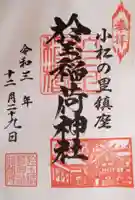 奉拝
小松の里鎮座
於玉稲荷神社
令和三年
十二月二十九日